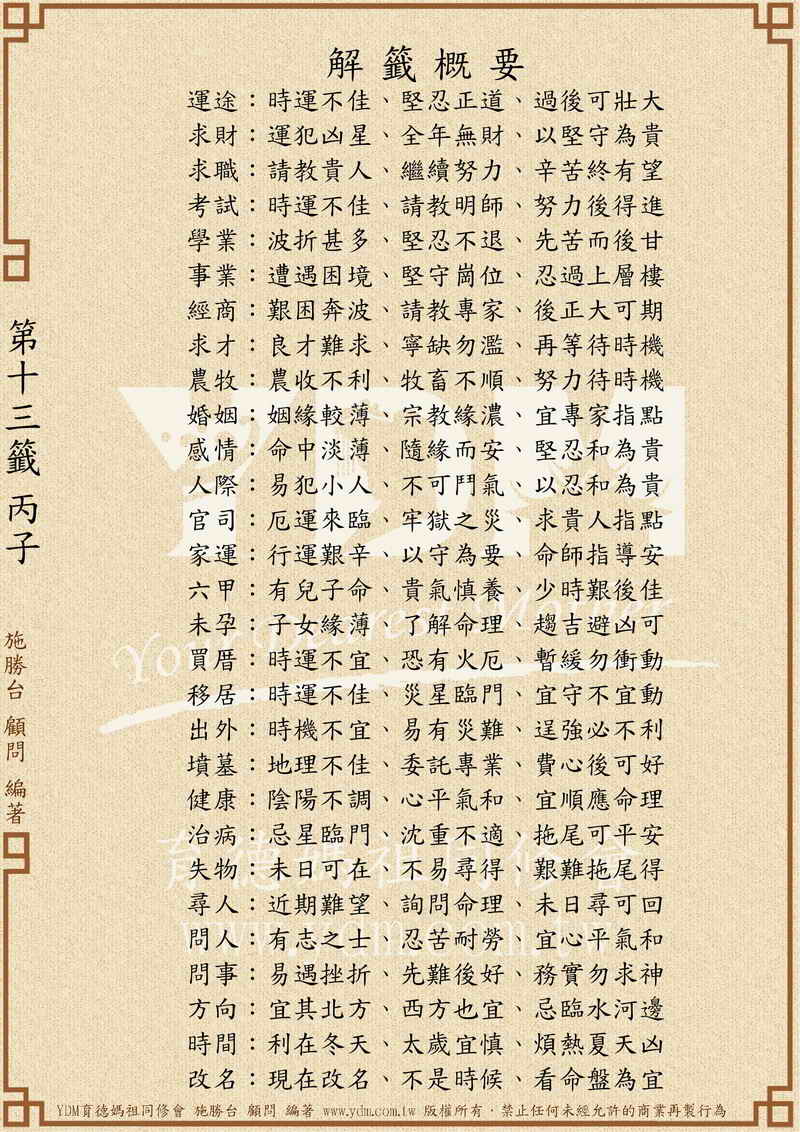 解籤概要
運途：時運不佳、堅忍正道、過後可壯大
求財：運犯凶星、全年無財、以堅守為貴
求職：請教貴人、繼續努力、辛苦終有望
考試：時運不佳、請教明師、努力後得進
學業：波折甚多、堅忍不退、先苦而後甘
事業：遭遇困境、堅守崗位、忍過上層樓
經商：艱困奔波、請教專家、後正大可期
求才：良才難求、寧缺勿濫、再等待時機
農牧：農收不利、牧畜不順、努力待時機
婚姻：姻緣較薄、宗教緣濃、宜專家指點
感情：命中淡薄、隨緣而安、堅忍和為貴
人際：易犯小人、不可鬥氣、以忍和為貴
官司：厄運來臨、牢獄之災、求貴人指點
家運：行運艱辛、以守為要、命師指導安
六甲：有兒子命、貴氣慎養、少時艱後佳
未孕：子女緣薄、了解命理、趨吉避凶可
買厝：時運不宜、恐有火厄、暫緩勿衝動
移居：時運不佳、災星臨門、宜守不宜動
出外：時機不宜、易有災難、逞強必不利
墳墓：地理不佳、委託專業、費心後可好
健康：陰陽不調、心平氣和、宜順應命理
治病：忌星臨門、沈重不適、拖尾可平安
失物：未日可在、不易尋得、艱難拖尾得
尋人：近期難望、詢問命理、未日尋可回
問人：有志之士、忍苦耐勞、宜心平氣和
問事：易遇挫折、先難後好、務實勿求神
方向：宜其北方、西方也宜、忌臨水河邊
時間：利在冬天、太歲宜慎、煩熱夏天凶
改名：現在改名、不是時候、看命盤為宜
第十三籤 丙子
施勝台 顧問 編著
YDM
Your Dearest Mother
育德媽祖同修會
www.ydm.com.tw
YDM育德媽祖同修會 施勝台 顧問 編著 www.ydm.com.tw 版權所有．禁止任何未經允許的商業再製行為